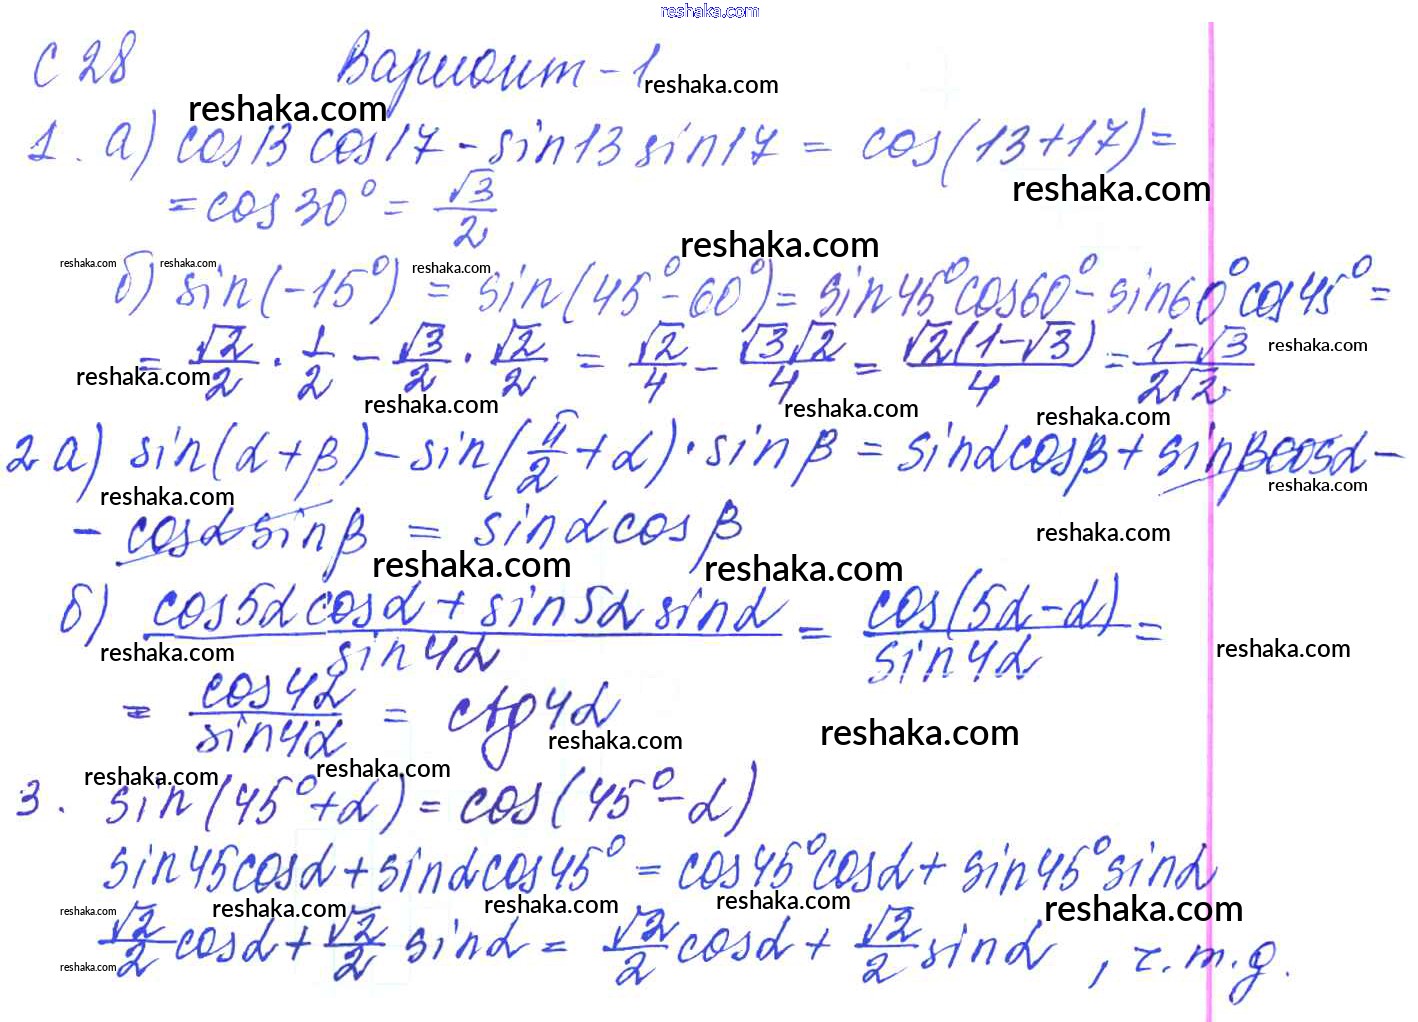 reshaka.com
С 28 Вариант - 1
reshaka.com
reshaka.com
1. а) cos13 cos17 - sin13 sin17 = cos(13+17) =
reshaka.com
= cos 30° = √3/2
reshaka.com
reshaka.com reshaka.com reshaka.com
б) sin(-15°) = sin(45°-60°) = sin45°cos60 - sin60°cos45° =
reshaka.com
= √2/2 · 1/2 - √3/2 · √2/2 = √2/4 - √3√2/4 = √2(1-√3)/4 = 1-√3/2√2
reshaka.com
reshaka.com reshaka.com reshaka.com
2 а) sin(α+β) - sin(π/2+α)·sinβ = sinαcosβ + sinβcosα -
reshaka.com reshaka.com
- cosα sinβ = sinα cosβ
reshaka.com
reshaka.com reshaka.com
б) cos5α cosα + sin5α sinα / sin4α = cos(5α-α) / sin4α =
reshaka.com reshaka.com
= cos4α / sin4α = ctg4α
reshaka.com reshaka.com
reshaka.com reshaka.com
3. sin(45°+α) = cos(45°-α)
sin45cosα + sinαcos45° = cos45°cosα + sin45°sinα
reshaka.com reshaka.com reshaka.com reshaka.com reshaka.com
√2/2 cosα + √2/2 sinα = √2/2 cosα + √2/2 sinα, ч.т.д.
reshaka.com